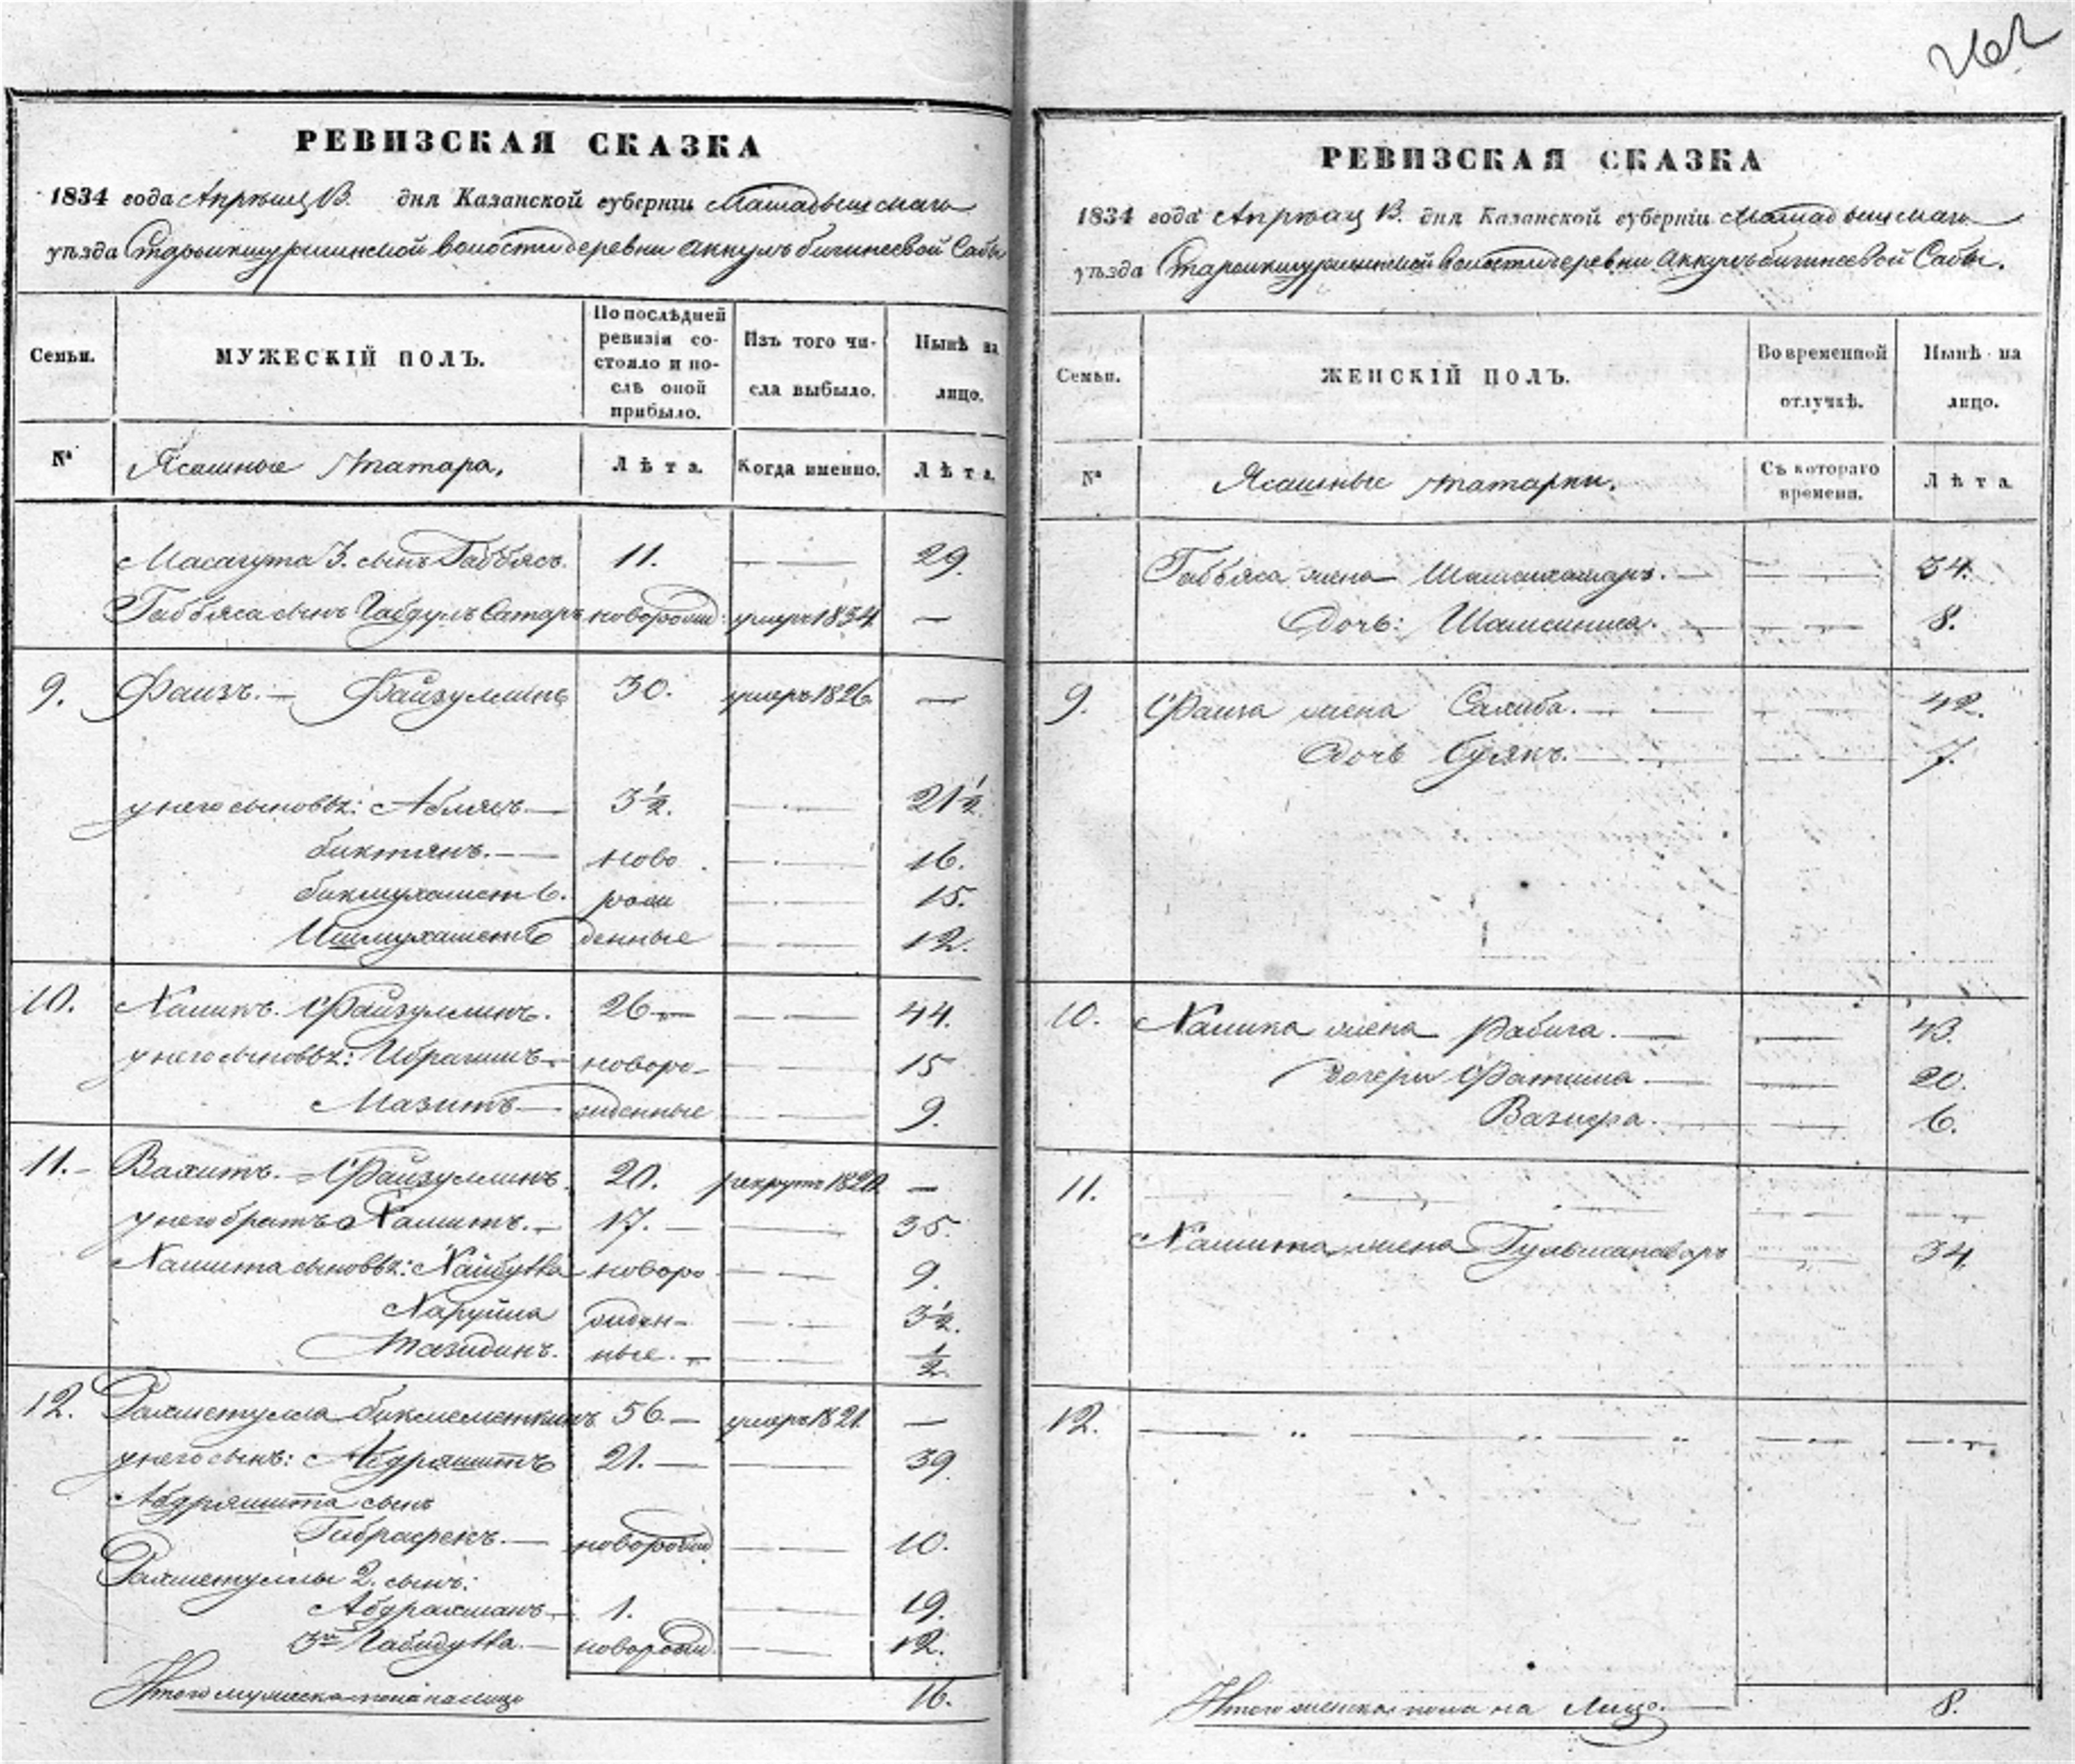 РЕВИЗСКАЯ СКАЗКА
1834 года Апрѣля дня Казанской губерніи Мамадышскаго
уѣзда Староикшурминской волости деревни Аккулъ бигинеевой Сабы
Семьи.
МУЖЕСКІЙ ПОЛЪ.
По послѣдней
ревизіи со-
стояло и по-
слѣ оной
прибыло.
Изъ того чи-
сла выбыло.
Нынѣ на
лицо.
№
Ясашные татара,
Лѣта.
Когда именно.
Лѣта.
Масагута 3. сынъ Габбясъ. 11. — 29.
Габбяса сынъ Габдулъ Сатаръ новорожд: умеръ 1834. —
9. Фаизъ. — Файзуллинъ 30. умеръ 1826. —
у него сыновья: Аблязъ — 3½. — 21½.
биктянъ. — ново — 16.
бикмухаметъ. рож — 15.
Ишмухаметъ денные — 12.
10. Халикъ. Файзуллинъ. 26 — — 44.
у него сыновья: Ибрагимъ — новоро- — 15
Мазитъ — жденные — 9.
11. — Вахитъ. — Файзуллинъ. 20. рекрутъ 1820. —
у него братъ Хамитъ. — 17. — — 35.
Хамита сыновья: Хайбулла новоро — 9.
Харулла жден- — 3½.
Тазидинъ. ные. — — ½
12. Рахметулла бикмеметкинъ 56. — умеръ 1821. —
у него сынъ: Абдряшитъ 21. — — 39.
Абдряшита сынъ
Гибрафенъ. — новорожд. — 10.
Рахметуллы 2. сынъ:
Абдрахманъ — 1. — 19.
3й Габидулла. — новорожд. — 12.
Итого мужеска пола на лицо 16.
РЕВИЗСКАЯ СКАЗКА
1834 года Апрѣля дня Казанской губерніи Мамадышскаго
уѣзда Староикшурминской волости деревни Аккулъ бигинеевой Сабы.
Семьи.
ЖЕНСКІЙ ПОЛЪ.
Во временной
отлучкѣ.
Нынѣ на
лицо.
№
Ясашные татарки.
Съ котораго
времени.
Лѣта
Габбяса жена Шамсикамаръ. — — 34.
Дочь: Шамсиниса. — — 8.
9. Фаиза жена Салиба. — — 42.
Дочь Булякъ. — — 7.
10. Халика жена Рабига. — — 43.
дочери Фатима. — — 20.
Вазифа. — — 6.
11. —
Хамита жена — 34.
12. — " — " — " —
Итого женска пола на Лицо. — 8.